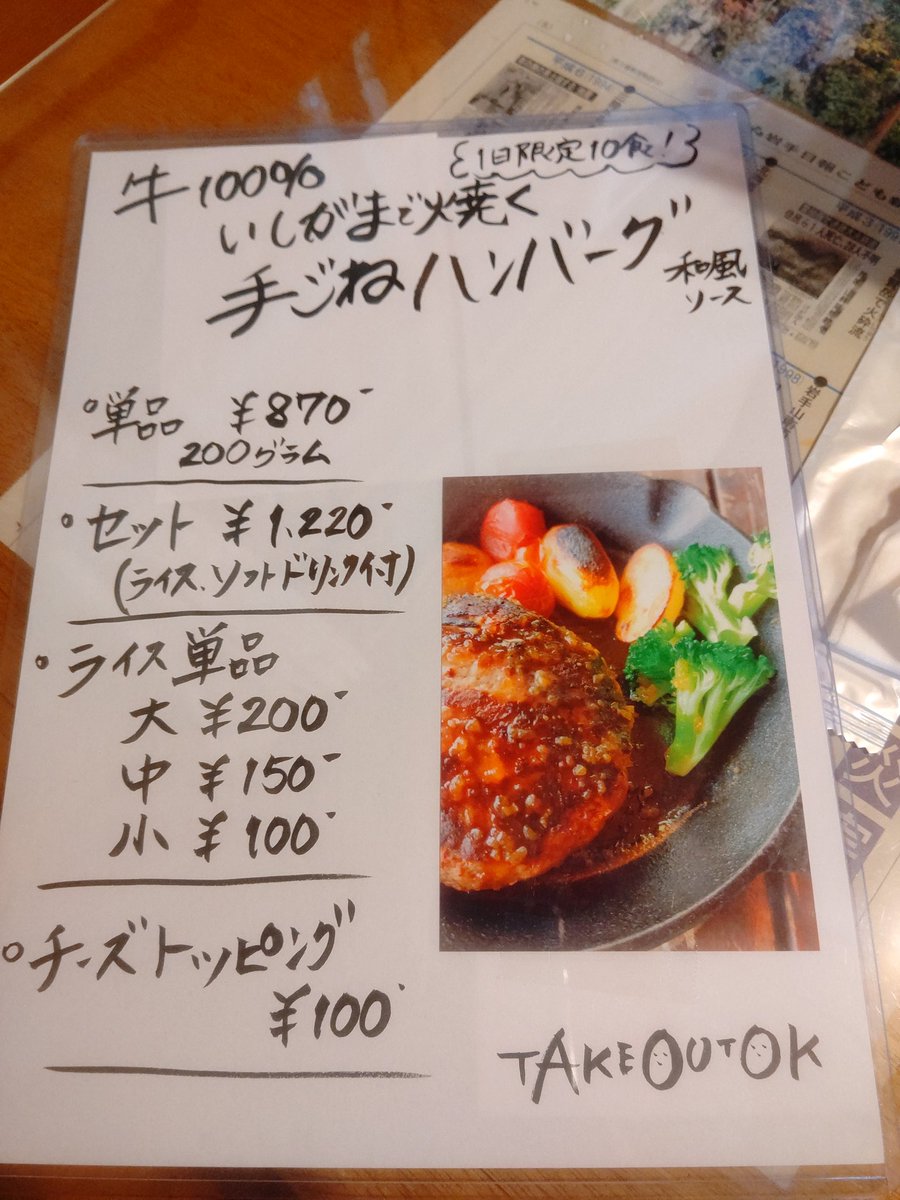 {1日限定10食!}
牛100%
いしがまで焼く
手ごねハンバーグ
和風
ソース
単品 ¥870-
200グラム
セット ¥1,220-
(ライス、ソフトドリンク付)
ライス単品
大 ¥200-
中 ¥150-
小 ¥100-
チーズトッピング
¥100-
TAKEOUTOK
岩手日報こども